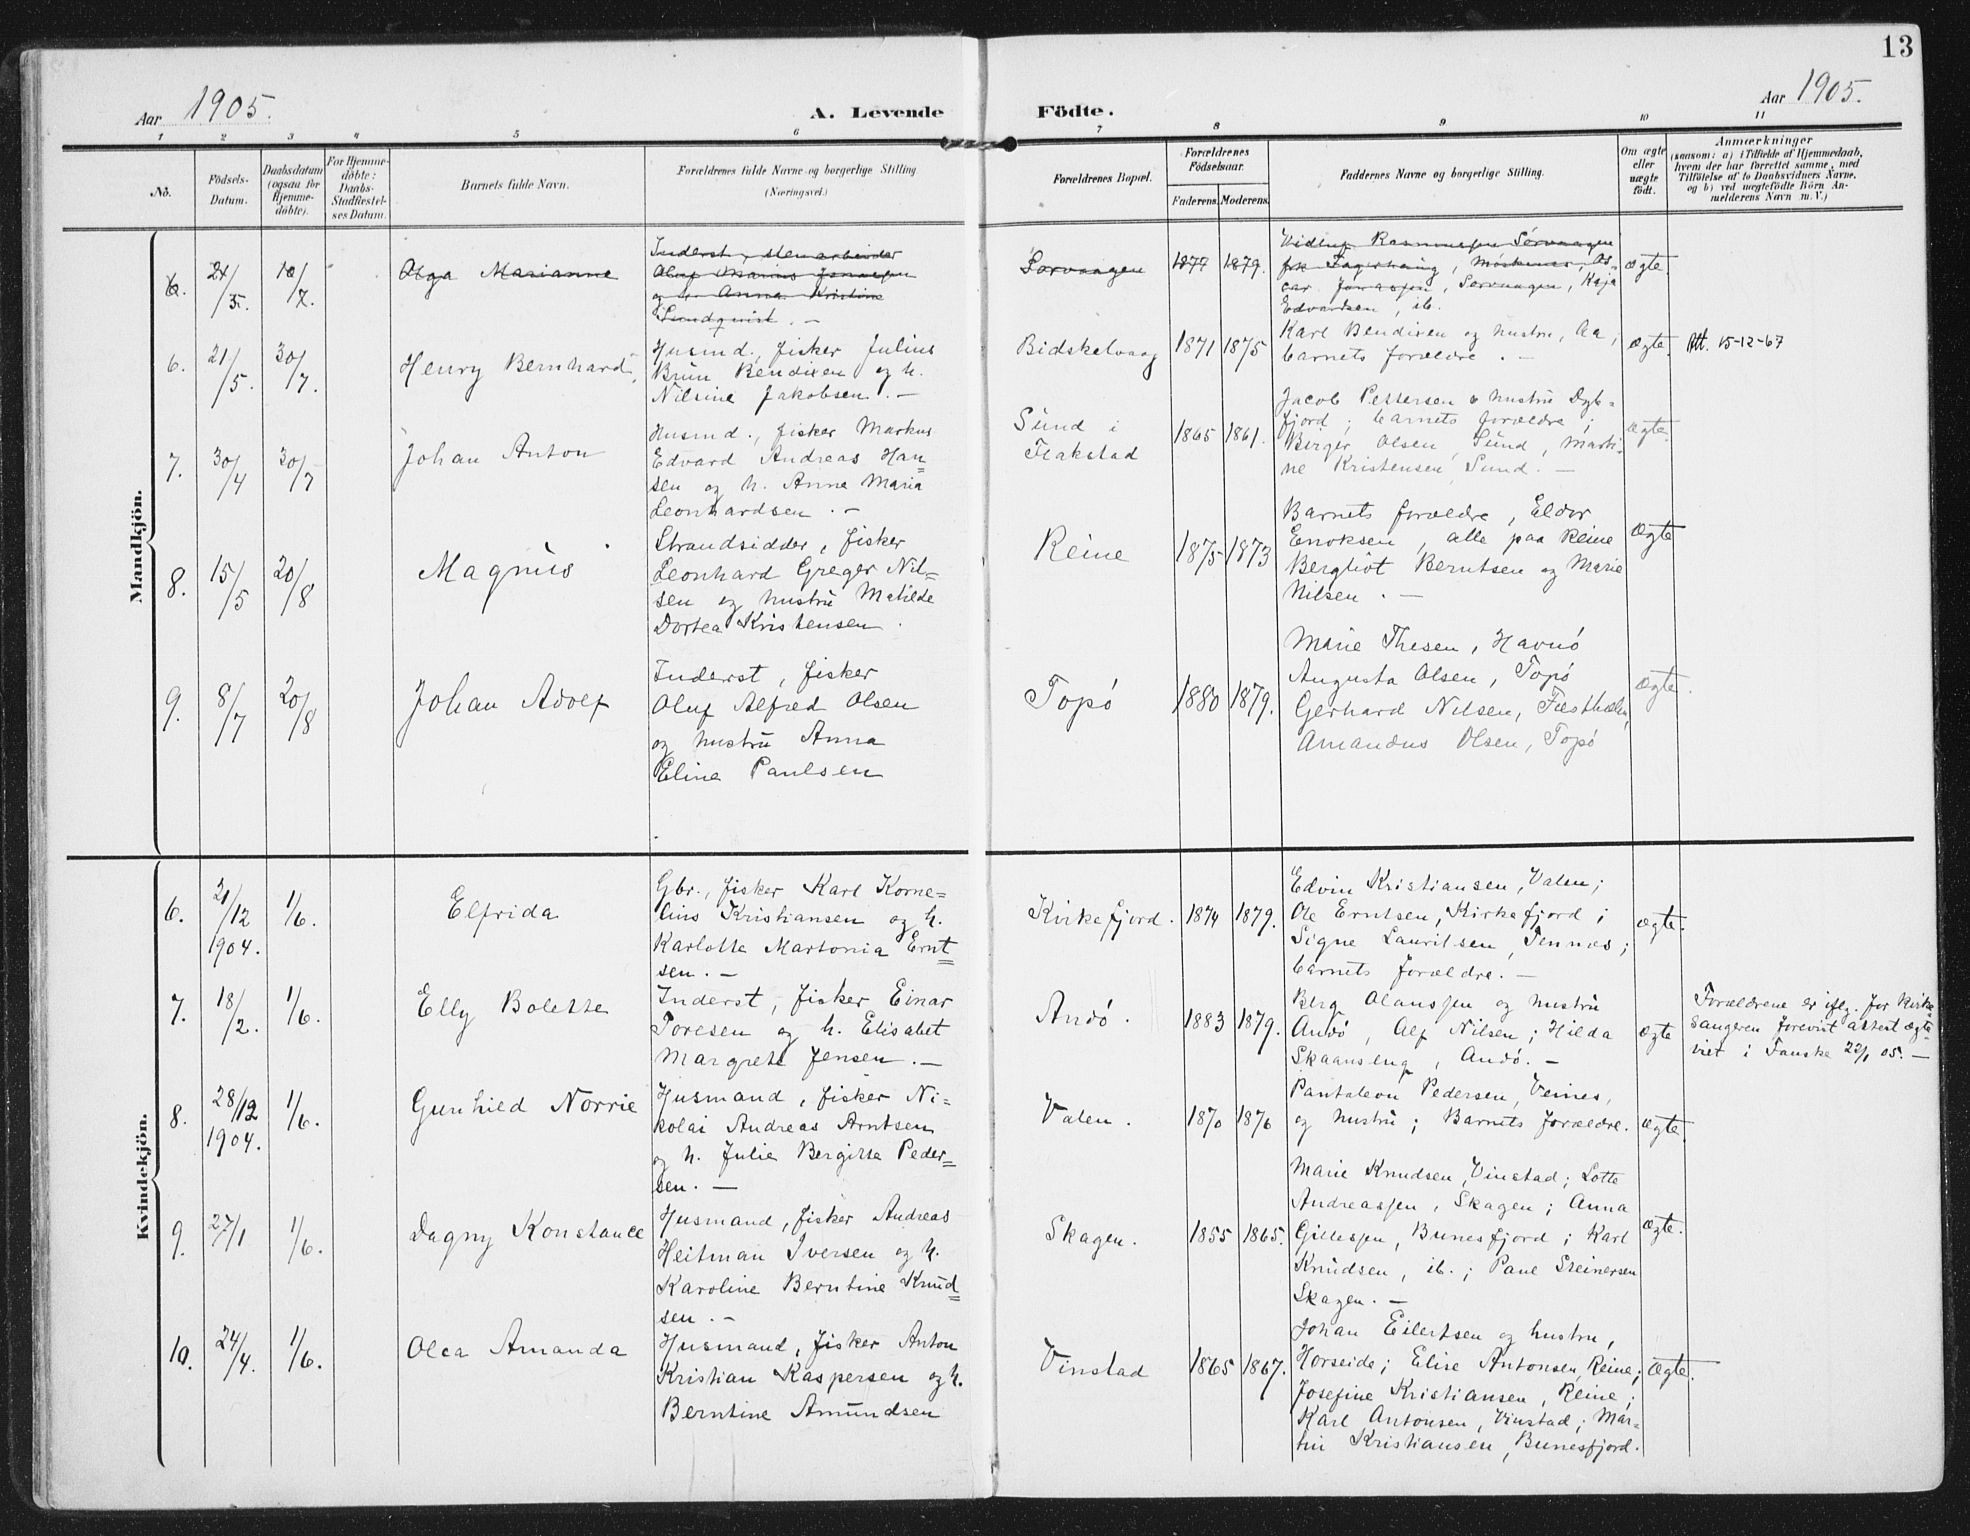 13
Aar 1905.
A. Levende
Födte.
Aar 1905.
1 2 3 4 5 6 7 8 9 10 11
No.
Födsels-
Datum.
Daabsdatum
(ogsaa for
Hjemme-
döbte).
For Hjemme-
döbte:
Daabs-
Stadfæstel-
ses Datum.
Barnets fulde Navn.
Forældrenes fulde Navne og borgerlige Stilling
(Næringsvei.)
Forældrenes Bopæl.
Forældrenes
Födselsaar.
Faderens.
Moderens.
Faddernes Navne og borgerlige Stilling.
Om ægte
eller
uægte
födt.
Anmærkninger
(saasom: a) i Tilfælde af Hjemmedaab,
hvem der har forrettet samme, med
Tilföielse af to Daabsvidners Navne,
og b) ved uægtefödte Börn An-
melderens Navn m. V.)
Mandkjön.
6. 21/5. 10/7. Olga Marianne
Inderst,
Oluf Marius Jonassen
og h. Anna Kristine
Lundquist. —
Sörvaagen 1877 1879.
Vidkup Rasmussen Sörvaagen
frk Fagerhaug, Moskenes, Os-
car Jonassen, Sörvaagen, Kaja
Edvardsen, ib.
ægte.
6. 21/5. 30/7. Henry Bernhard
Husmd., fisker Julius
Brun Bendixen og h.
Nilsine Jakobsen. —
Bidskelvaag 1871 1875
Karl Bendixen og hustru, Aa,
barnets forældre. —
ægte. Att. 15-12-67
7. 30/4 30/7 Johan Anton
Husmd., fisker Markus
Edvard Andreas Han=
sen og h. Anna Maria
Leonhardsen. —
Sund i
Flakstad
1865 1861.
Jacob Pettersen & hustru Dyb=
fjord; barnets forældre;
Berger Olsen Sund, Marti-
ne Kristensen Sund. —
ægte.
8. 15/5 20/8 Magnus
Strandsidder, fisker
Leonhard Greger Nil=
sen og hustru Matilde
Dortea Kristensen.
Reine 1875 1873
Barnets forældre, Eldor
Enoksen, alle paa Reine
Bergliot Berntsen og Marie
Nilsen. —
Ægte
9. 8/7 20/8 Johan Adolf
Inderst, fisker
Oluf Alfred Olsen
og hustru Anna
Eline Paulsen
Topö 1880 1879.
Marie Thesen, Havnö
Augusta Olsen, Topö
Gerhard Nilsen,
Amandus Olsen, Topö
Ægte.
Kvindekjön.
6. 21/12 1904. 1/6. Elfrida
Gbr., fisker Karl Korne=
lius Kristiansen og h.
Karlotte Martonia Ernt=
sen. —
Kirkefjord. 1874 1879.
Edvin Kristiansen, Valen;
Ole Erntsen, Kirkefjord;
Signe Lauritsen, Tennes;
barnets forældre. —
ægte.
7. 18/2. 1/6. Elly Bolette
Inderst, fisker Einar
Toresen og h. Elisabet
Margrete Jensen. —
Andö. 1883 1879.
Berg Olaussen og hustru
Andö, Alf Nilsen; Hilda
Skaanseng, Andö. —
ægte
Forældrene er iflg. for kirke=
sangeren forevist attest ægte=
viet i Fauske 22/1 05. —
8. 28/12 1904. 1/6. Gunhild Norrie
Husmand, fisker Ni-
kolai Andreas Arntsen
og h. Julie Bergitte Peder=
sen. —
Valen. 1870 1876
Pantaleon Pedersen, Veines,
og hustru; Barnets forældre.
ægte.
9. 27/1 1/6. Dagny Konstance
Husmand, fisker Andreas
Heitman Iversen og h.
Karoline Berntine Knud=
sen. —
Skagen. 1855 1865.
Marie Knudsen, Vinstad; Lotte
Andreassen, Skagen; Anna
Gillesen, Bunesfjord; Karl
Knudsen, ib.; Paul Steinersen
Skagen. —
ægte.
10. 24/4. 1/6. Olea Amanda
Husmand, fisker Anton
Kristian Kaspersen og h.
Berntine Amundsen
Vinstad 1865 1867.
Johan Eilertsen og hustru,
Horseide; Elise Antonsen, Reine;
Josefine Kristiansen, Reine;
Karl Antonsen, Vinstad; Mar=
tin Kristiansen, Bunesfjord.
Ægte.